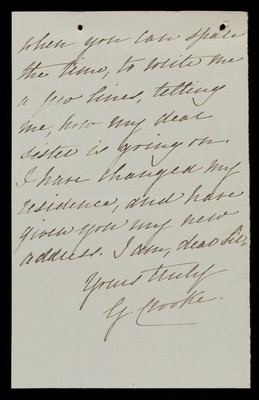 when you can spare
the time, to write me
a few lines, telling
me, how my dear
sister is going on.
I have changed my
residence, and have
given you my new
address. I am, dear Sir,
Yours truly
G. Cooke.